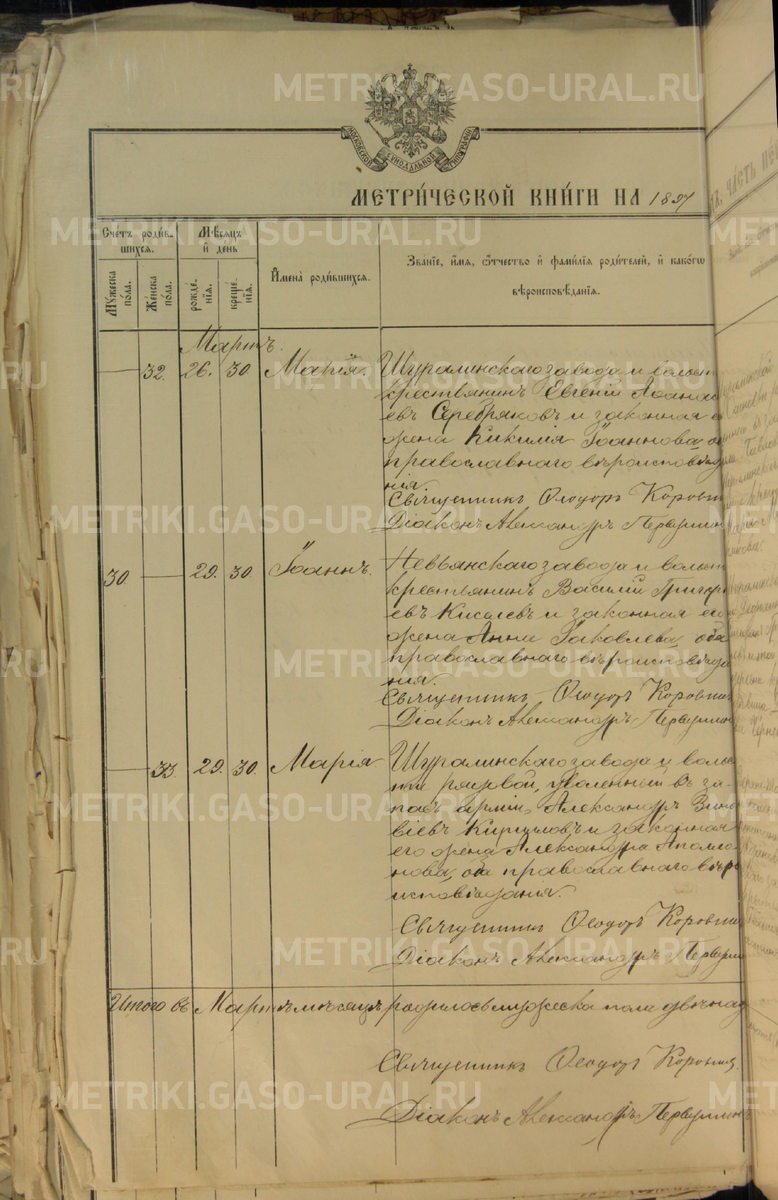 METRIKI.GASO-URAL.RU
МОСКОВСКОЙ СѴНОДАЛЬНОЙ ТИПОГРАФІИ
МЕТРИ́ЧЕСКОЙ КНИ́ГИ НА 1897
Счетъ роди́в-
шихся.
Мѣсяцъ
и҆ день
И҆мена̀ роди́вшихся.
Зва́нїе, и҆́мя, ѻ҆́тчество и҆ фами́лїя роди́телей, и҆ како́гѡ
вѣроисповѣ́данїя.
Мꙋ́жеска
по́ла.
Же́нска
по́ла.
рожде-
нїя.
креще-
нїя.
Мартъ.
32. 26. 30 Марія. Шуралинскаго завода и волост
крестьянинъ Евгеній Аѳанась
евъ Серебряковъ и законная е
жена Кикилія Іоаннова, об
православнаго вѣроисповѣда
нія.
Священникъ Ѳеодоръ Коровин
Діаконъ Александръ Первушин
30 29. 30. Іоаннъ. Невьянскаго завода и волост
крестьянинъ Василій Григорь
евъ Киселевъ и законная его
жена Анна Іаковлева, оба
православнаго вѣроисповѣда
нія.
Священникъ Ѳеодоръ Коровин
Діаконъ Александръ Первушин
33 29. 30. Марія Шуралинскаго завода и волос
ти рядовой, уволенный въ за
пасъ арміи, Александръ Зино
віевъ Кирилловъ и законная
его жена Александра Аполло
нова, оба православнаго вѣро
исповѣданія.
Священникъ Ѳеодоръ Коровин
Діаконъ Александръ Первушин
Итого въ Мартѣ мѣсяцѣ родилось мужеска пола двѣнад
Священникъ Ѳеодоръ Коровин
Діаконъ Александръ Первушинъ
ЧАСТЬ ПЕ